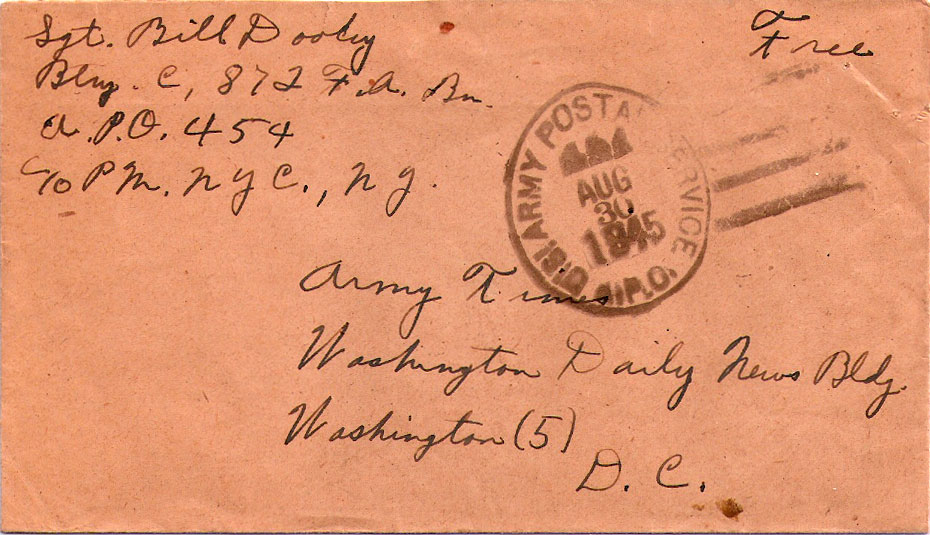 Sgt. Bill Dooley
Btry. C, 872 F.A. Bn.
A.P.O. 454
c/o P.M. N Y C., N Y.
Free
U.S. ARMY POSTAL SERVICE
AUG
30
1945
A.P.O.
Army Times
Washington Daily News Bldg.
Washington (5)
D. C.